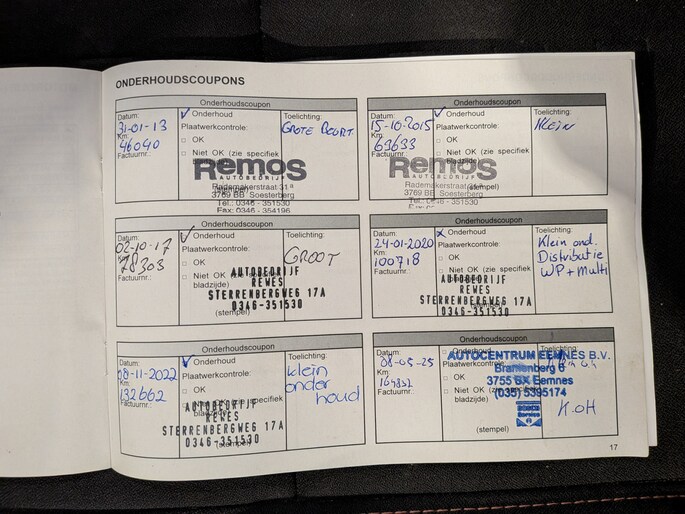 ONDERHOUDSCOUPONS
Onderhoudscoupon
Datum:
31-01-13
Km:
46040
Factuurnr.:
Onderhoud
Plaatwerkcontrole:
OK
Niet OK (zie specifiek
Toelichting:
GROTE BEURT
RemoS
AUTOBEDRIJF
Rademakerstraat 31ª
3769 BB Soesterberg
Tel.: 0346 - 351530
Fax: 0346 - 354196
Onderhoudscoupon
Datum:
15-10-2015
Km:
69633
Factuurnr.:
Onderhoud
Plaatwerkcontrole:
OK
Niet OK (zie specifiek
bladzijde)
Toelichting:
Klein
RemoS
AUTOBEDRIJF
Rademakerstraat
3769 BB Soesterberg
Tel.: 0346 - 351530
Onderhoudscoupon
Datum:
02-10-17
Km:
78303
Factuurnr.:
Onderhoud
Plaatwerkcontrole:
OK
Niet OK (zie specifiek
bladzijde)
(stempel)
Toelichting:
GROOT
AUTOBEDRIJF
REWES
STERRENBERGWEG 17A
0346-351530
Onderhoudscoupon
Datum:
24-01-2020
Km:
100718
Factuurnr.:
Onderhoud
Plaatwerkcontrole:
OK
Niet OK (zie specifiek
bladzijde)
(stempel)
Toelichting:
Klein ond.
Distributie
WP + Multi
AUTOBEDRIJF
REWES
STERRENBERGWEG 17A
0346-351530
Onderhoudscoupon
Datum:
08-11-2022
Km:
132662
Factuurnr.:
Onderhoud
Plaatwerkcontrole:
OK
Niet OK (zie specifiek
bladzijde)
(stempel)
Toelichting:
klein
onder
houd
AUTOBEDRIJF
REWES
STERRENBERGWEG 17A
0346-351530
Onderhoudscoupon
Datum:
08-05-25
Km:
Factuurnr.:
OK
Niet OK (zie specifiek
bladzijde)
(stempel)
AUTOCENTRUM EEMNES B.V.
Bramenberg 6
3755 BX Eemnes
(035) 5395174
BOSCH
Service
K.OH
17